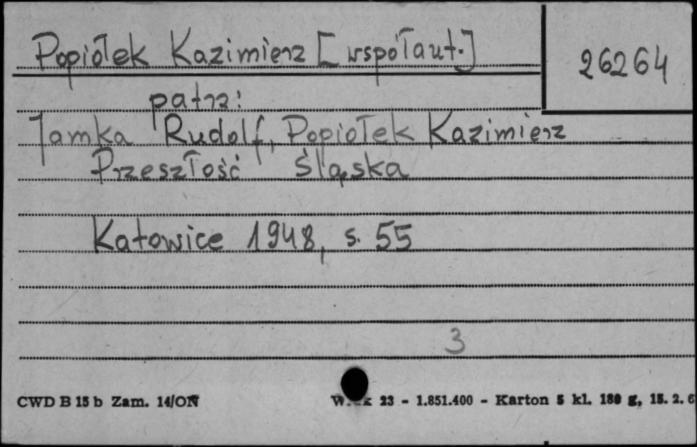 Popiołek Kazimierz [współaut.]
26264
patrz:
Jamka Rudolf, Popiołek Kazimierz
Przeszłość Śląska
Katowice 1948, s. 55
3
CWD B 15 b Zam. 14/ON
23 - 1.851.400 - Karton 5 kl. 180 g, 15. 2. 6